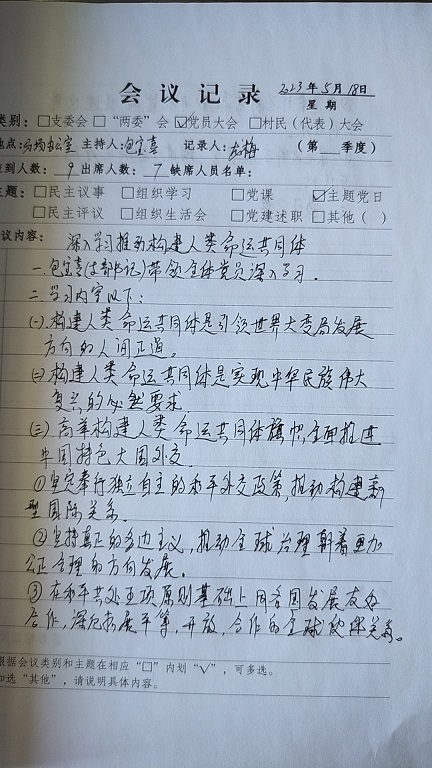 会议记录 2023年5月18日
星期
类别：□支委会 □“两委”会 ☑党员大会 □村民（代表）大会
地点：冯场办公室 主持人：包宝喜 记录人：龙梅 （第 季度）
应到人数：9 出席人数：7 缺席人员名单：
主题：□民主议事 □组织学习 □党课 ☑主题党日
□民主评议 □组织生活会 □党建述职 □其他（ ）
议内容：深入学习推动构建人类命运共同体
一.包宝喜(支部书记)带领全体党员深入学习.
二.学习内容以下：
(一).构建人类命运共同体是引领世界大变局发展
方向的人间正道。
(二)构建人类命运共同体是实现中华民族伟大
复兴的必然要求
(三)高举构建人类命运共同体旗帜,全面推进
中国特色大国外交.
①坚定奉行独立自主的和平外交政策,推动构建新
型国际关系.
②坚持真正的多边主义,推动全球治理朝着更加
公正合理的方向发展.
③在和平共处五项原则基础上同各国发展友好
合作,深化拓展平等,开放,合作的全球伙伴关系。
根据会议类别和主题在相应“□”内划“√”，可多选。
如选“其他”，请说明具体内容。